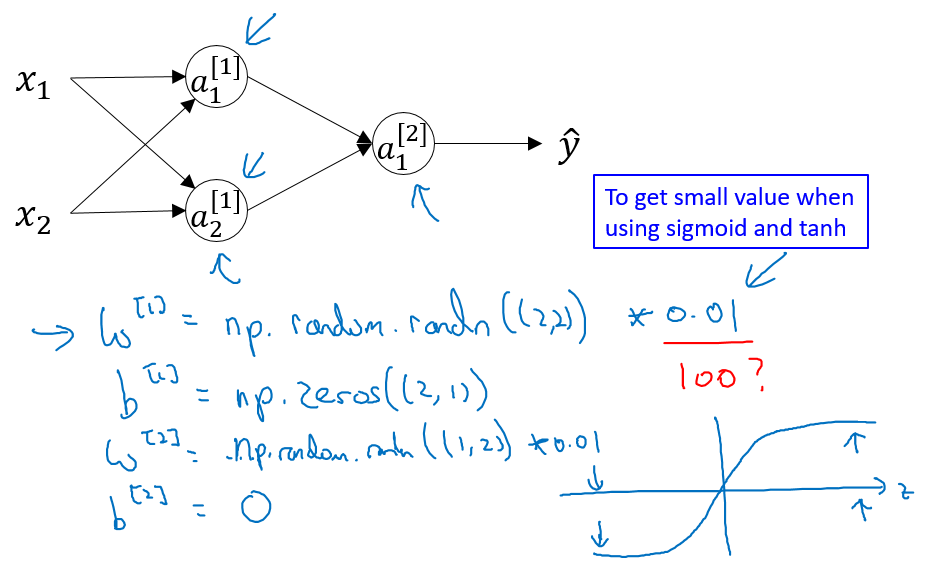 x₁
a₁^[1]
x₂
a₂^[1]
a₁^[2]
ŷ
To get small value when
using sigmoid and tanh
→ W^[1] = np.random.randn((2,2)) * 0.01
100?
b^[1] = np.zeros((2,1))
W^[2] = np.random.randn((1,2)) * 0.01
b^[2] = 0
z